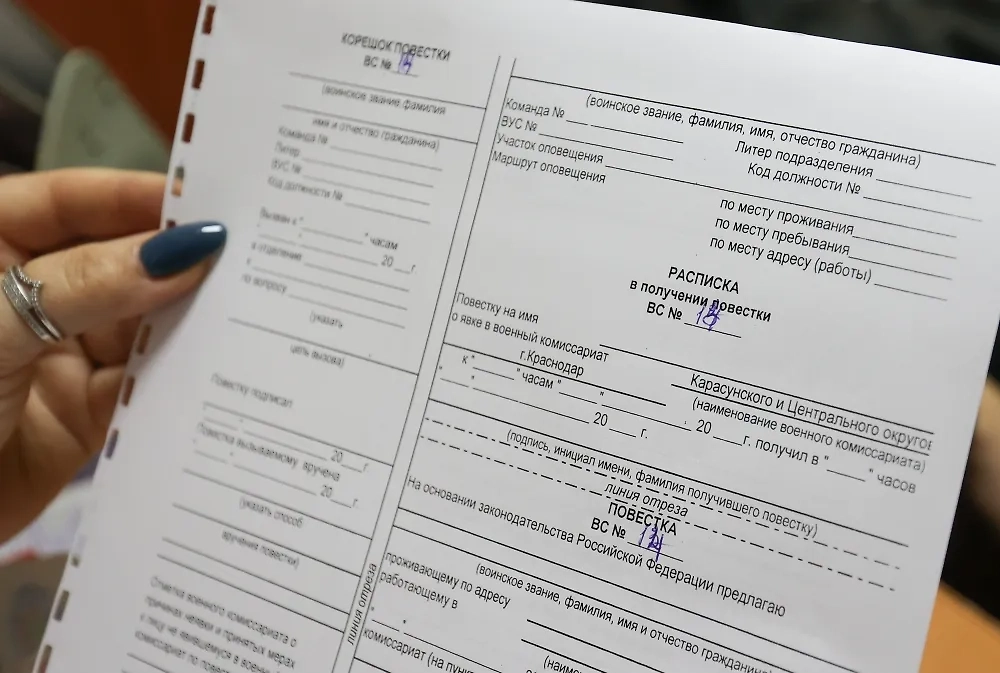 КОРЕШОК ПОВЕСТКИ
ВС №
(воинское звание, фамилия
имя и отчество гражданина)
Команда №
Литер
ВУС №
Код должности №
Вызван к " " часам
" " 20 г.
в отделение
по вопросу
(указать
цель вызова)
Повестку подписал
" " 20 г.
Повестка вызываемому вручена
" " 20 г.
(указать способ
вручения повестки)
Отметка военного комиссариата о
причинах неявки и принятых мерах
к лицу не явившемуся в военный
комиссариат по
линия отреза
(воинское звание, фамилия, имя, отчество гражданина)
Команда №
Литер подразделения
ВУС №
Код должности №
Участок оповещения
Маршрут оповещения
по месту проживания
по месту пребывания
по месту адресу (работы)
РАСПИСКА
в получении повестки
ВС №
Повестку на имя
о явке в военный комиссариат
Карасунского и Центрального округов
г.Краснодар
(наименование военного комиссариата)
к " " часам " " 20 г. получил в " " часов
" " 20 г.
(подпись, инициал имени, фамилия получившего повестку)
линия отреза
ПОВЕСТКА
ВС №
На основании законодательства Российской Федерации предлагаю
(воинское звание, фамилия, имя и отчество гражданина)
проживающему по адресу
работающему в
комиссариат (на